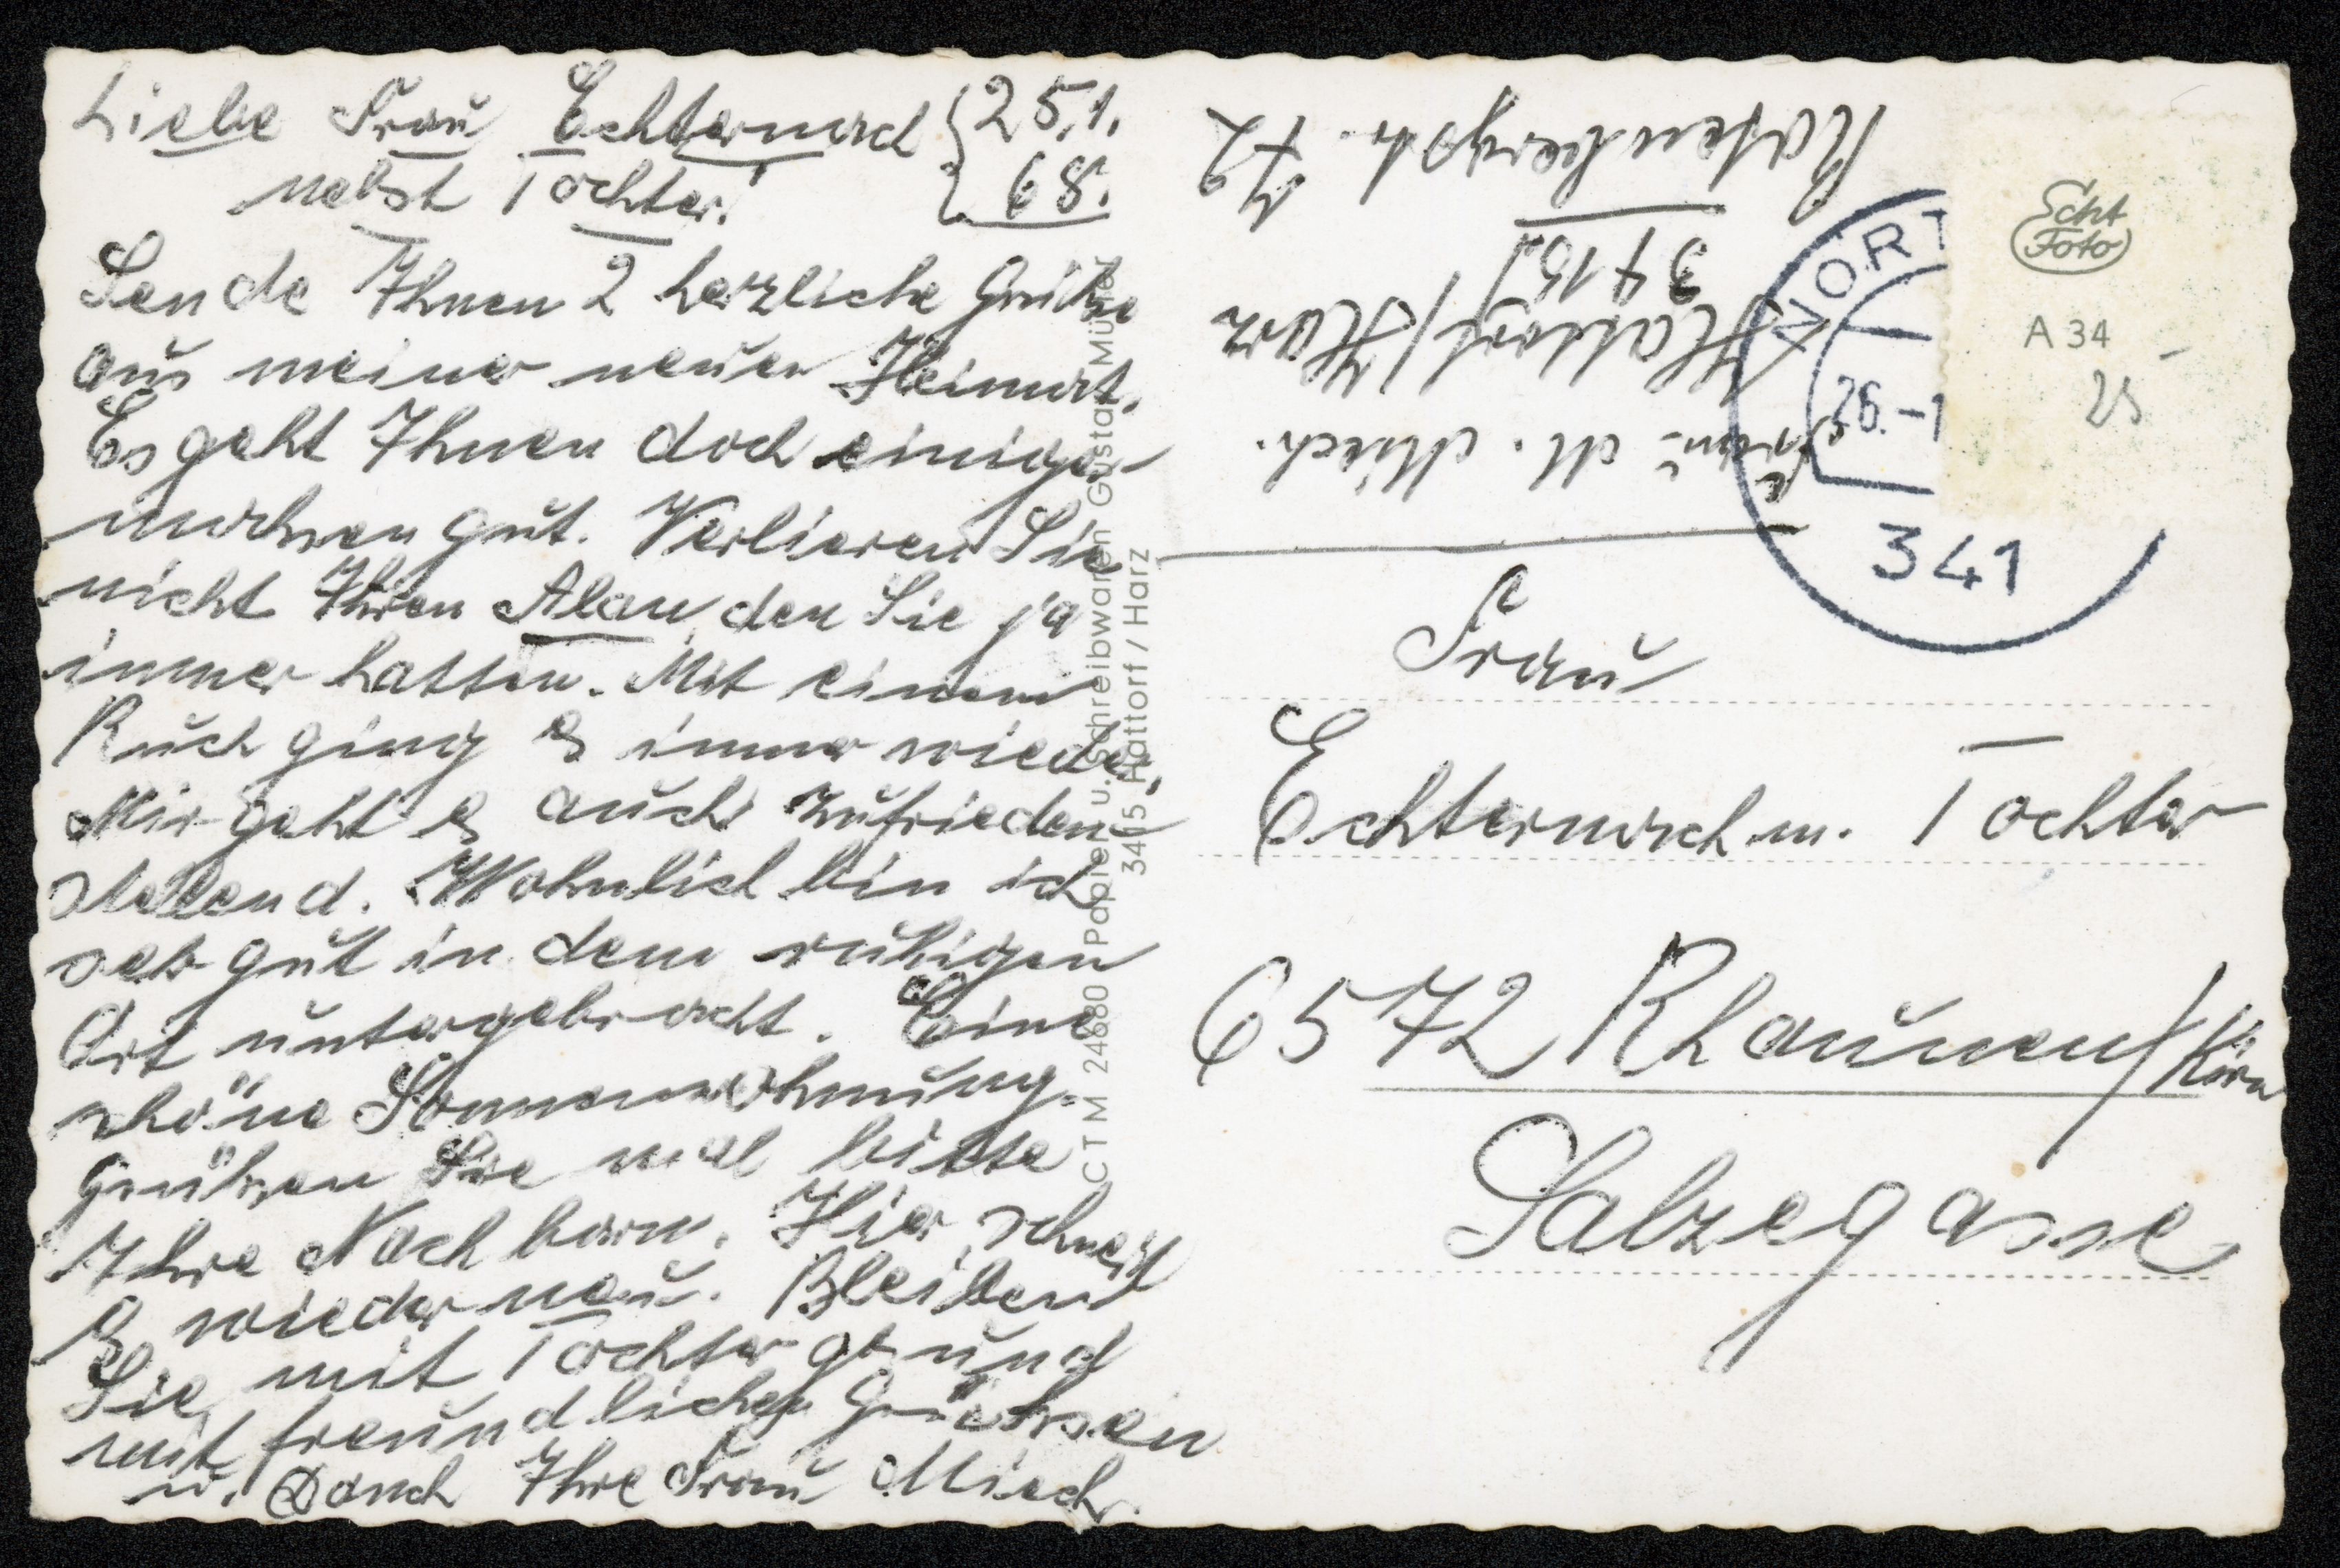 Liebe Frau Echternach
nebst Tochter!
25.1.
68.
Sende Ihnen 2 herzliche Grüße
aus meiner neuen Heimat.
Es geht Ihnen doch einiger
machsen gut. Verlieren Sie
nicht Ihren Alan, den Sie ja
immer hatten. Mit einem
Ruck ging es immer wieder.
Mir geht es auch zufrieden
stellend. Wohnlich bin ich
sehr gut in dem ruhigen
Ort untergebracht. Eine
schöne Sonnenwohnung.
Grüßen Sie mal bitte
Ihre Nachbarn. Hier schneit
es wieder neu. Bleiben
Sie mit Tochter gesund
mit freundlichen Grüßen
u. Dank Ihre Frau Misch.
CTM 24680 Papier u. Schreibwaren Gustav Müller
3415 Hattorf / Harz
Frau M. Misch.
Hattorf/Harz
3415
Rotenbergstr. 72
NORT
26.-1
341
Echt
Foto
A 34
25
Frau
Echternach m. Tochter
6572 Rhaunen/Kirn
Salzegasse